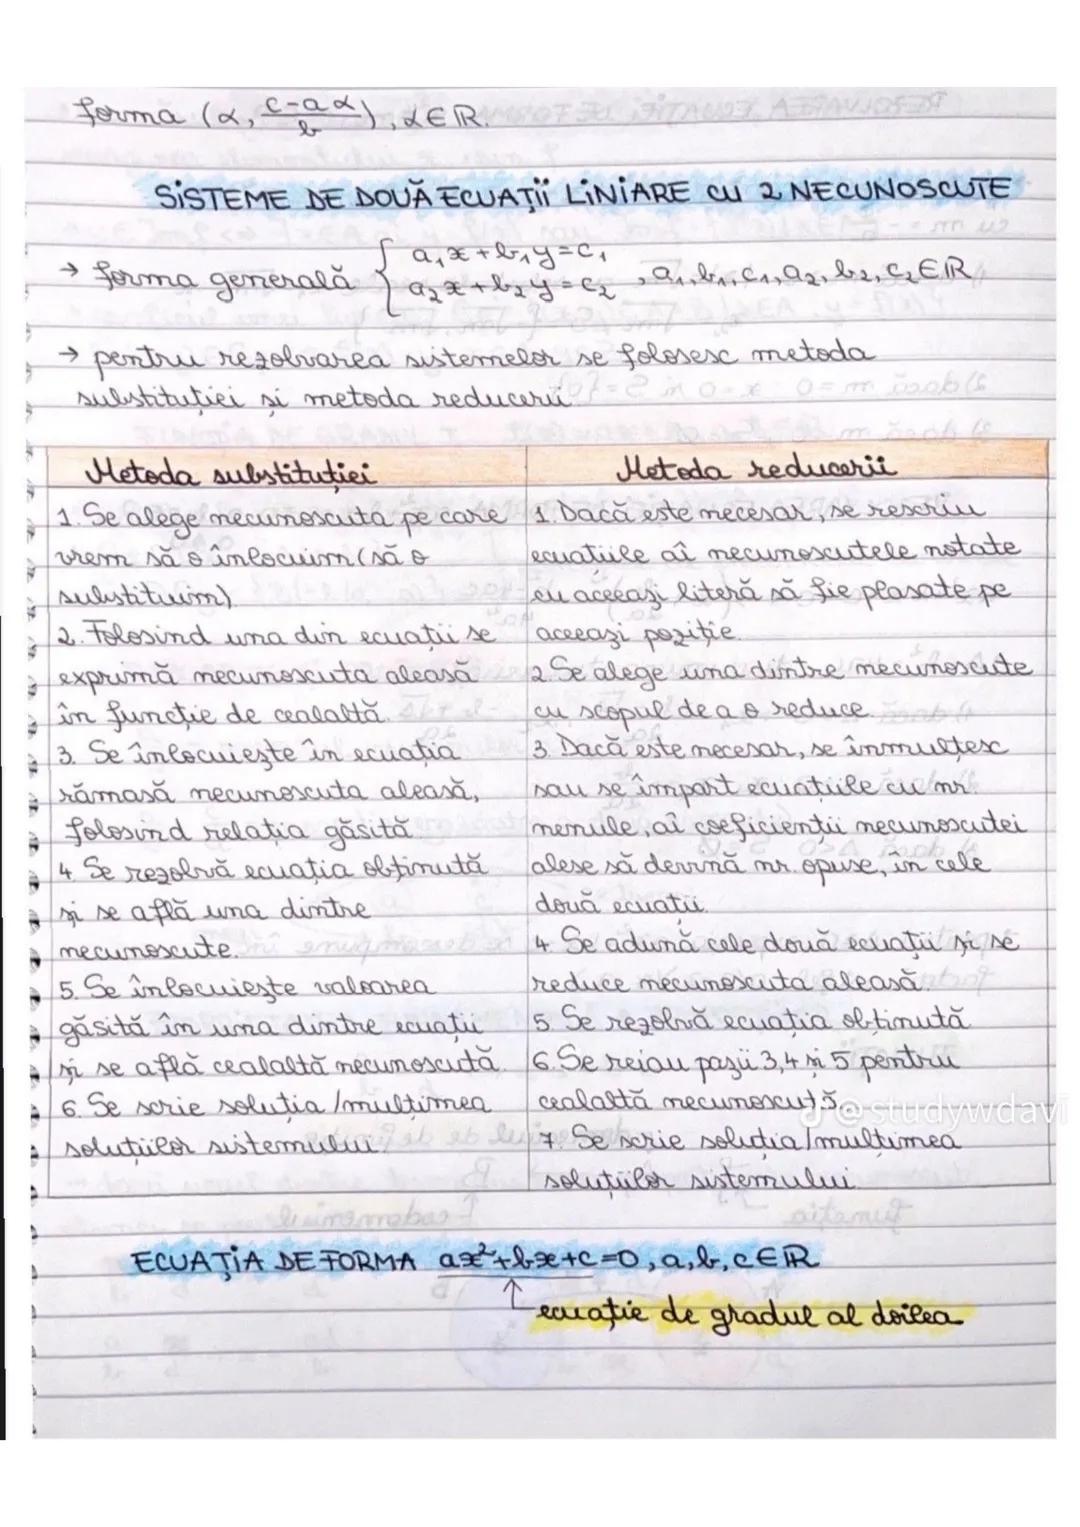 forma (α, (c-aα)/b), α∈ℝ.
SISTEME DE DOUĂ ECUAȚII LINIARE CU 2 NECUNOSCUTE
→ forma generală { a₁x+b₁y=c₁
a₂x+b₂y=c₂ , a₁,b₁,c₁,a₂,b₂,c₂∈ℝ
→ pentru rezolvarea sistemelor se folosesc metoda
substituției și metoda reducerii.
Metoda substituției
1. Se alege necunoscuta pe care
vrem să o înlocuim (să o
substituim).
2. Folosind una din ecuații se
exprimă necunoscuta aleasă
în funcție de cealaltă.
3. Se înlocuiește în ecuația
rămasă necunoscuta aleasă,
folosind relația găsită.
4. Se rezolvă ecuația obținută
și se află una dintre
necunoscute.
5. Se înlocuiește valoarea
găsită în una dintre ecuații
și se află cealaltă necunoscută.
6. Se scrie soluția/mulțimea
soluțiilor sistemului.
Metoda reducerii
1. Dacă este necesar, se rescriu
ecuațiile aî necunoscutele notate
cu aceeași literă să fie plasate pe
aceeași poziție.
2. Se alege una dintre necunoscute
cu scopul de a o reduce.
3. Dacă este necesar, se înmulțesc
sau se împart ecuațiile cu nr.
nenule, aî coeficienții necunoscutei
alese să devină nr. opuse, în cele
două ecuații.
4. Se adună cele două ecuații și se
reduce necunoscuta aleasă.
5. Se rezolvă ecuația obținută
6. Se reiau pașii 3,4 și 5 pentru
cealaltă necunoscută.
7. Se scrie soluția/mulțimea
soluțiilor sistemului.
@studywdavi
ECUAȚIA DE FORMA ax²+bx+c=0, a,b,c∈ℝ
↑ ecuație de gradul al doilea